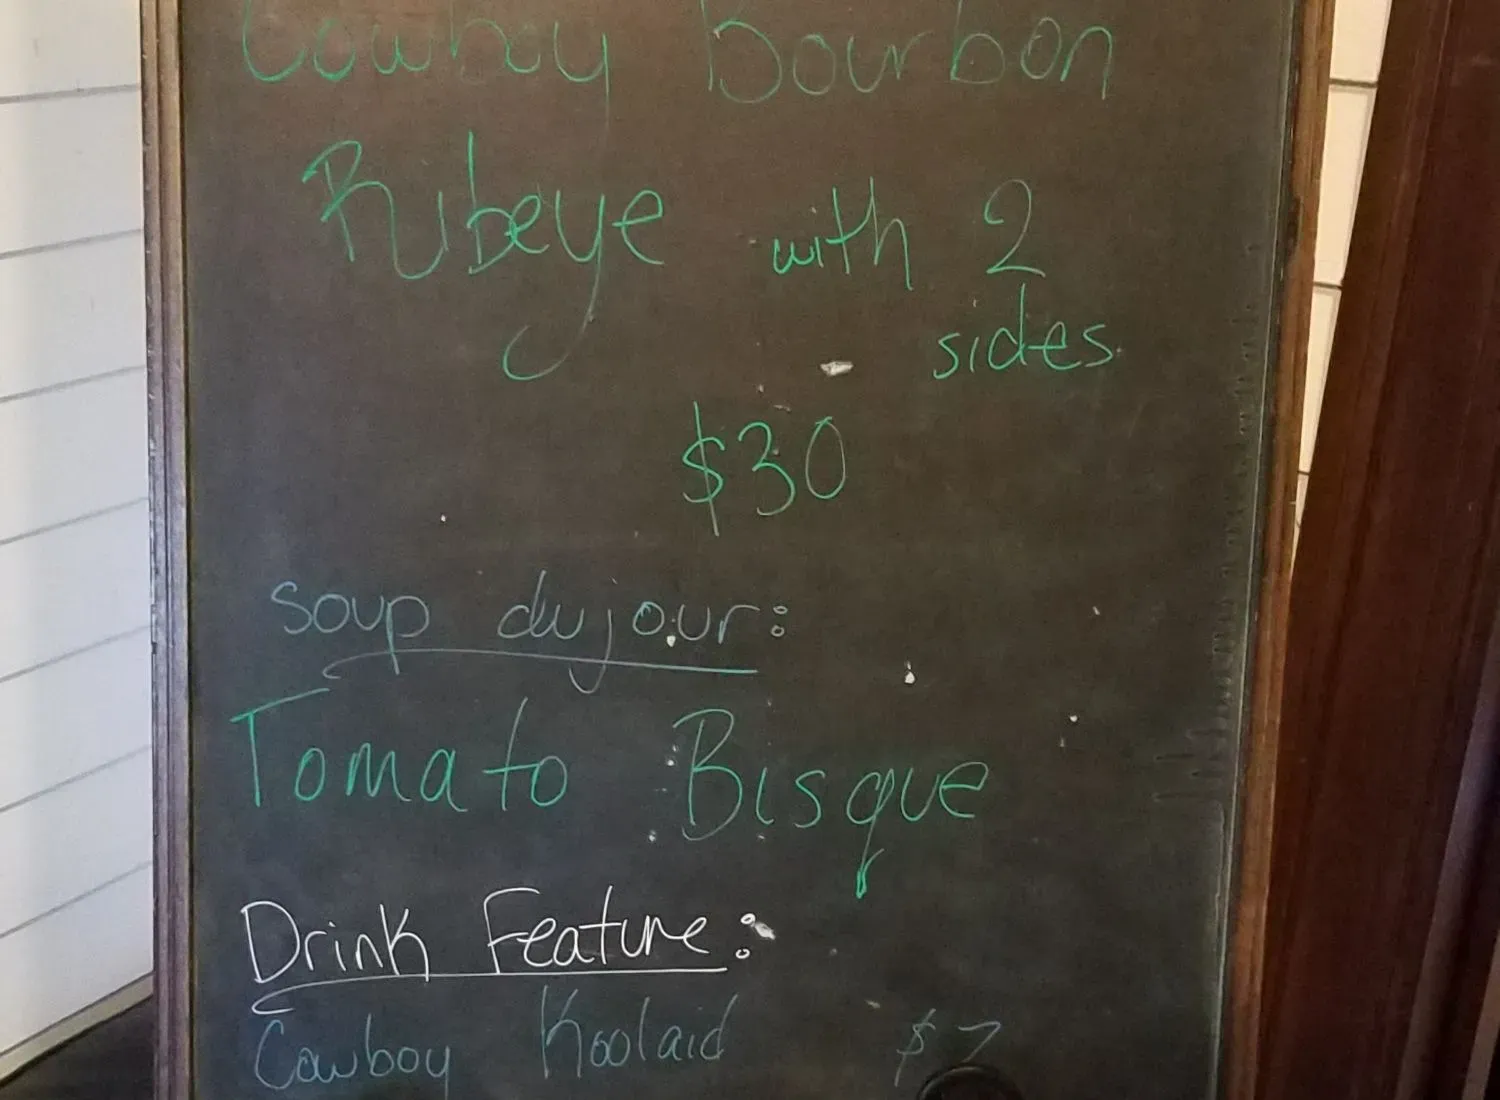 Cowboy Bourbon
Ribeye with 2
sides
$30
soup du jour:
Tomato Bisque
Drink Feature:
Cowboy Koolaid $7